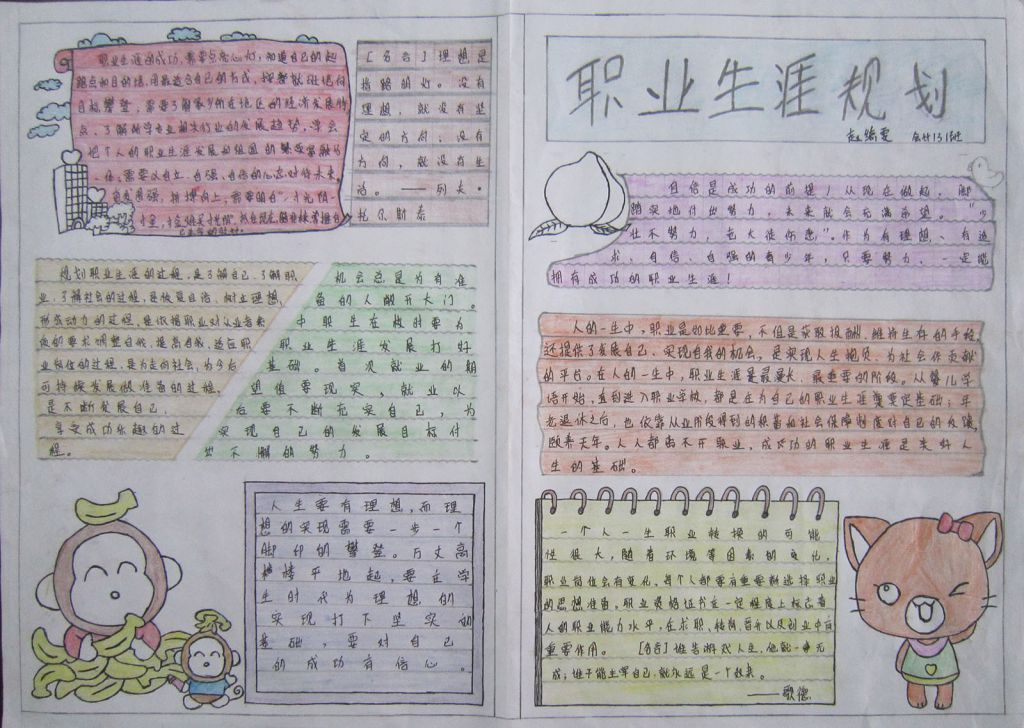 职业生涯规划
会计131班
自信是成功的前提！从现在做起，脚
踏实地付出努力，未来就会充满希望。“少
壮不努力，老大徒伤悲”。作为有理想、有追
求、自信、自强的青少年，只要努力，一定能
拥有成功的职业生涯！
人的一生中，职业是如此重要，不但是获取报酬，维持生存的手段，
还提供了发展自己、实现自我的机会，是实现人生抱负、为社会作贡献
的平台。在人的一生中，职业生涯是最漫长、最重要的阶段。从婴儿学
语开始，直到进入职业学校，都是在为自己的职业生涯奠定基础；年
老退休之后，也依靠从业阶段得到的积蓄和社会保障制度对自己的反馈，
颐养天年。人人都离不开职业，成功的职业生涯是美好人
生的基础。
一个人一生职业转换的可能
性很大，随着环境等因素的变化，
职业岗位会有变化，每个人都要有重要新选择职业
的思想准备。职业资格证书在一定程度上标志着
人的职业能力水平，在求职、转岗、晋升以及创业中有
重要作用。 【名言】谁若游戏人生，他就一事无
成；谁不能主宰自己，就永远是一个奴隶。
——歌德
职业生涯的成功，需要点亮心灯，知道自己的起
点和目的地，用最适合自己的方式，
目标攀登，需要了解家乡所在地区的经济发展特
点、了解所学专业相关行业的发展趋势，学会
把个人的职业生涯发展和祖国的
一体，需要以自立、自强、自信的心态对待未来，
【名言】理想是
指路明灯。没有
理想，就没有坚
定的方向；没有
方向，就没有生
活。——列夫·
托尔斯泰
规划职业生涯的过程，是了解自己、了解职
业、了解社会的过程，是恢复自信、树立理想，
形成动力的过程，是依据职业对从业者素
质的要求调整自我、提高自我、适应职
业岗位的过程，是为走向社会、为今后
可持续发展做准备的过程，
是不断发展自己、
享受成功乐趣的过
程。
机会总是为有准
备的人敞开大门。
中职生在校时要为
职业生涯发展打好
基础。首次就业的期
望值要现实，就业以
后要不断充实自己，为
实现自己的发展目标付
出不懈的努力。
人生要有理想，而理
想的实现需要一步一个
脚印的攀登。万丈高
楼平地起，要在学
生时代为理想的
实现打下坚实的
基础，要对自己
的成功有信心。